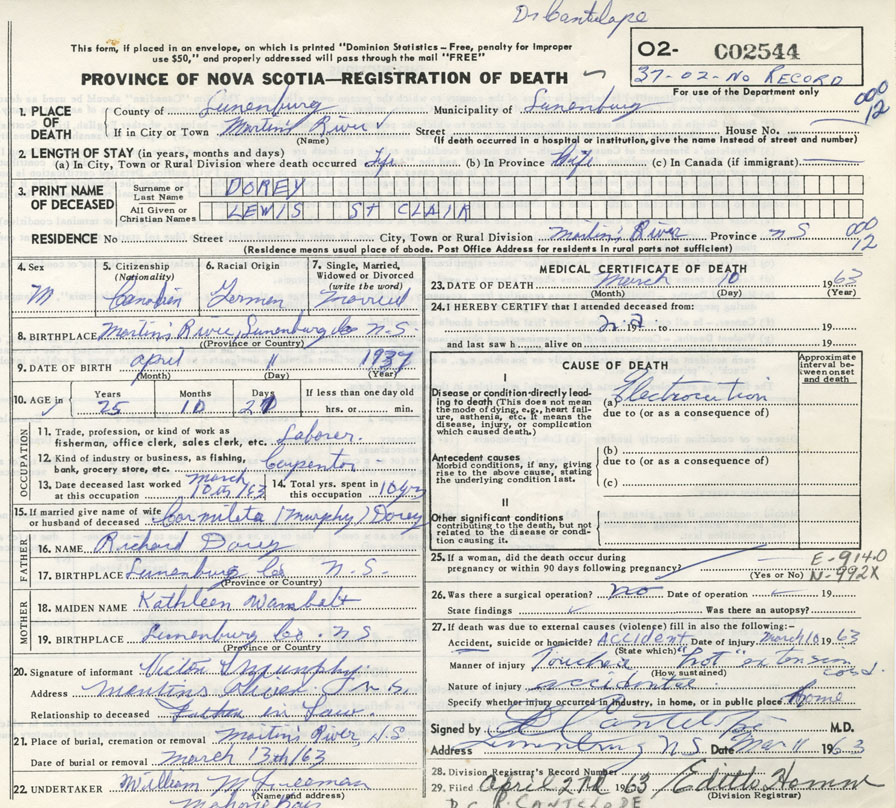 Dr Cantelope
This form, if placed in an envelope, on which is printed "Dominion Statistics – Free, penalty for improper
use $50," and properly addressed will pass through the mail "FREE"
PROVINCE OF NOVA SCOTIA—REGISTRATION OF DEATH
O2- C02544
37-02-No RECORD
For use of the Department only
1. PLACE OF DEATH
County of Lunenburg Municipality of Lunenburg 000 12
If in City or Town Martin's River Street House No.
(Name) (If death occurred in a hospital or institution, give the name instead of street and number)
2. LENGTH OF STAY (in years, months and days)
(a) In City, Town or Rural Division where death occurred (b) In Province Life (c) In Canada (if immigrant)
3. PRINT NAME OF DECEASED
Surname or Last Name DOREY
All Given or Christian Names LEWIS ST CLAIR
RESIDENCE No Street City, Town or Rural Division Martin's River Province N S 000 12
(Residence means usual place of abode. Post Office Address for residents in rural parts not sufficient)
4. Sex M
5. Citizenship (Nationality) Canadien
6. Racial Origin German
7. Single, Married, Widowed or Divorced (write the word) Married
8. BIRTHPLACE Martin's River, Lunenburg Co N.S.
(Province or Country)
9. DATE OF BIRTH April 11 1937
(Month) (Day) (Year)
10. AGE in Years 25 Months 10 Days If less than one day old hrs. or min.
OCCUPATION
11. Trade, profession, or kind of work as fisherman, office clerk, sales clerk, etc. Laborer.
12. Kind of industry or business, as fishing, bank, grocery store, etc. Carpentor
13. Date deceased last worked at this occupation March 10th/63
14. Total yrs. spent in this occupation 10 yrs
15. If married give name of wife or husband of deceased Carmileta (Murphy) Dorey
FATHER
16. NAME Richard Dorey
17. BIRTHPLACE Lunenburg Co N.S.
(Province or Country)
MOTHER
18. MAIDEN NAME Kathleen Wambolt
19. BIRTHPLACE Lunenburg Co. N S
(Province or Country)
20. Signature of informant Murphy
Address Martins River N S
Relationship to deceased Father in Law.
21. Place of burial, cremation or removal Martin's River, N.S
Date of burial or removal March 13th/63
22. UNDERTAKER William M
(Name and address)
Mahone Bay
MEDICAL CERTIFICATE OF DEATH
23. DATE OF DEATH March 10 1963
(Month) (Day) (Year)
24. I HEREBY CERTIFY that I attended deceased from:
19 to 19
and last saw h alive on 19
CAUSE OF DEATH
Approximate interval between onset and death
I
Disease or condition directly leading to death (This does not mean the mode of dying, e.g., heart failure, asthenia, etc. It means the disease, injury, or complication which caused death.)
(a) Electrocution
due to (or as a consequence of)
Antecedent causes
Morbid conditions, if any, giving rise to the above cause, stating the underlying condition last.
(b)
due to (or as a consequence of)
(c)
II
Other significant conditions
contributing to the death, but not related to the disease or condition causing it.
25. If a woman, did the death occur during
pregnancy or within 90 days following pregnancy?
(Yes or No)
E-914.0
N-992X
26. Was there a surgical operation? no Date of operation 19
State findings Was there an autopsy?
27. If death was due to external causes (violence) fill in also the following:–
Accident, suicide or homicide? ACCIDENT Date of injury March 10 1963
(State which)
Manner of injury Touched "hot" extension cord.
(How sustained)
Nature of injury accidental
Specify whether injury occurred in industry, in home, or in public place Home
Signed by Cantelope M.D.
Address Lunenburg N.S. Date Mar 11 1963
28. Division Registrar's Record Number
29. Filed April 27th 1963 Edith
(Division Registrar)
CANTELOPE